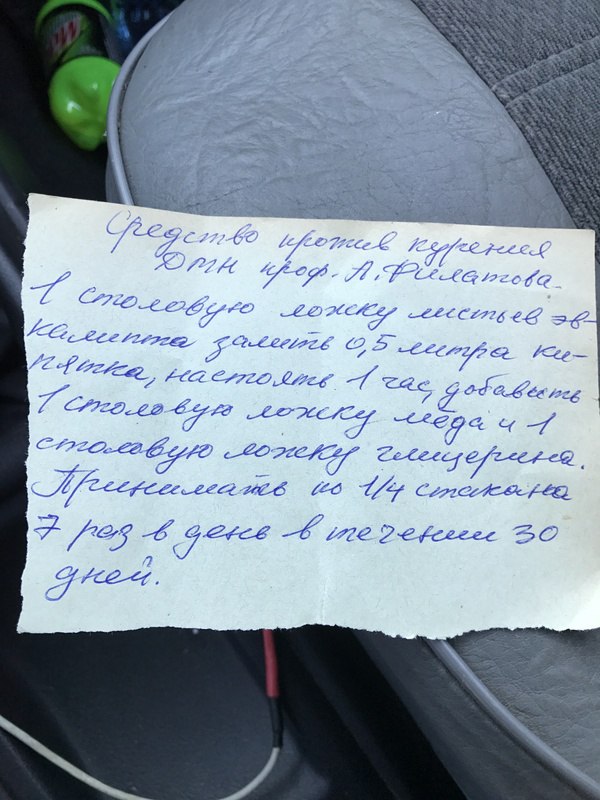 Средство против курения
ДМН проф. Л. Филатова.
1 столовую ложку листьев эв-
калипта залить 0,5 литра ки-
пятка, настоять 1 час, добавить
1 столовую ложку мёда и 1
столовую ложку глицерина.
Принимать по 1/4 стакана
7 раз в день в течении 30
дней.